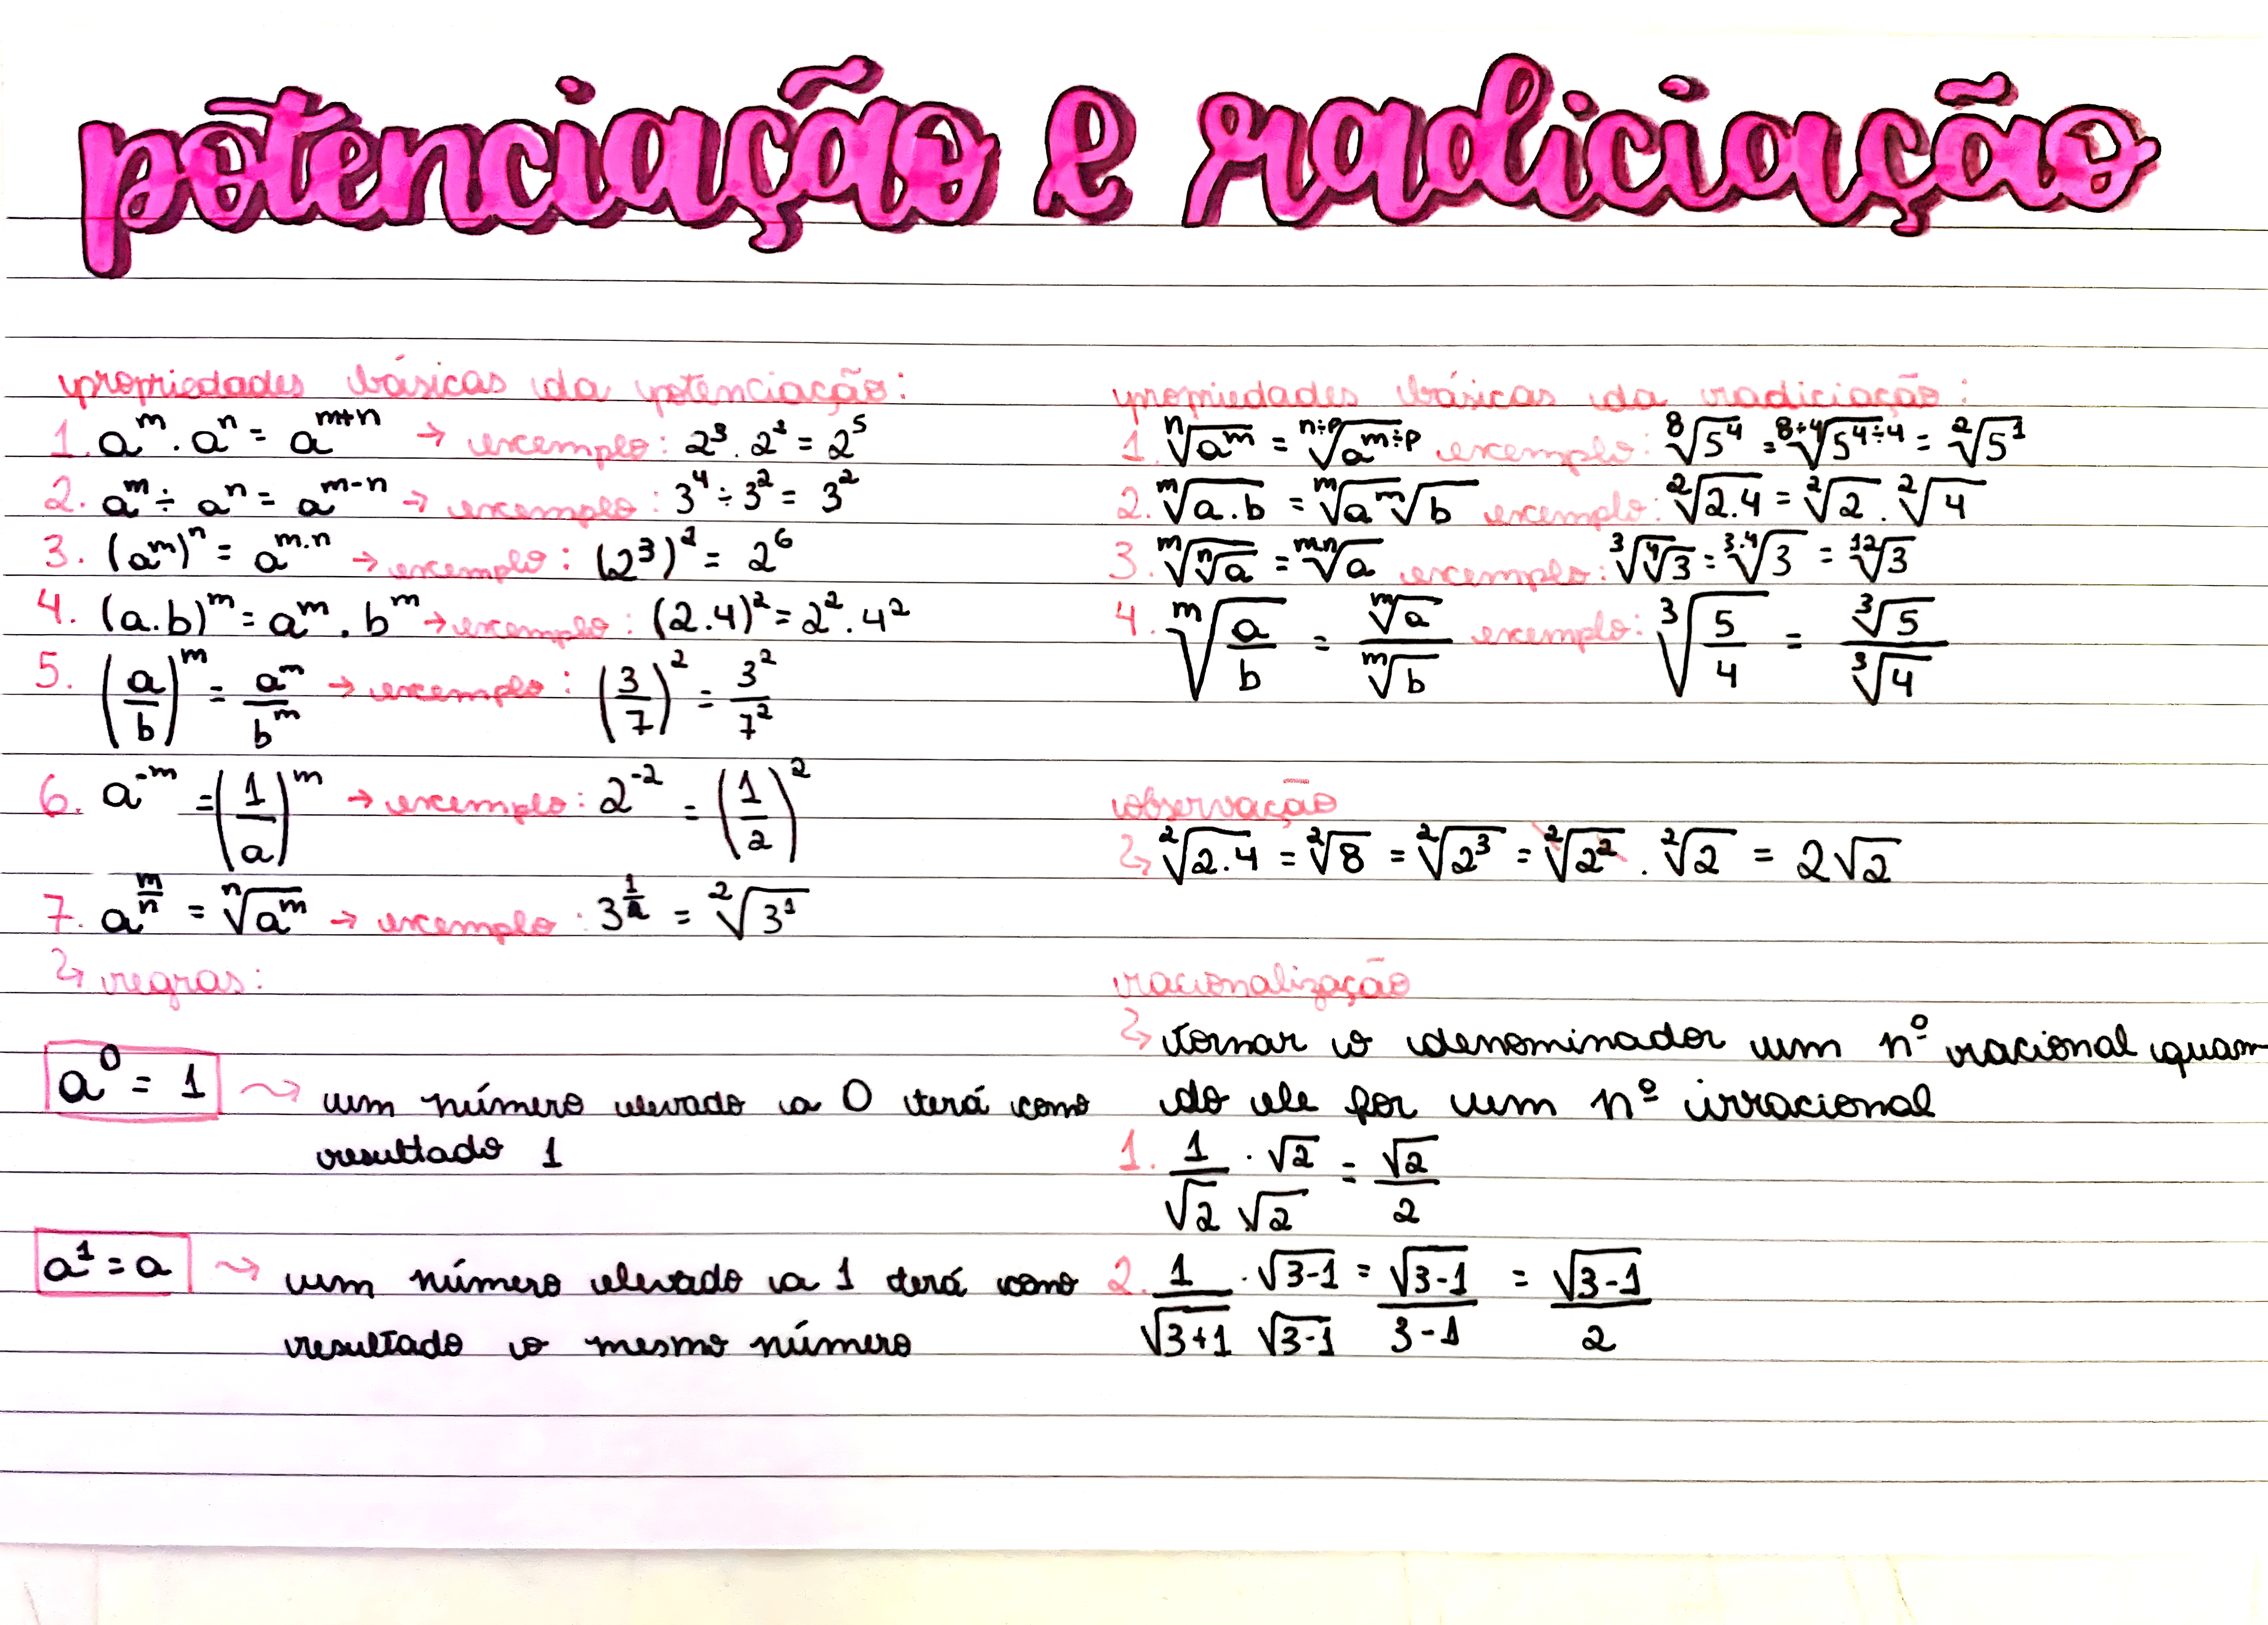 potenciação e radiciação
propriedades básicas da potenciação:
1. a^m . a^n = a^(m+n) → exemplo: 2^3 . 2^2 = 2^5
2. a^m ÷ a^n = a^(m-n) → exemplo: 3^4 ÷ 3^2 = 3^2
3. (a^m)^n = a^(m.n) → exemplo: (2^3)^2 = 2^6
4. (a.b)^m = a^m . b^m → exemplo: (2.4)^2 = 2^2 . 4^2
5. (a/b)^m = a^m/b^m → exemplo: (3/7)^2 = 3^2/7^2
6. a^-m = (1/a)^m → exemplo: 2^-2 = (1/2)^2
7. a^(m/n) = ⁿ√(a^m) → exemplo: 3^(1/2) = ²√(3^1)
↳ regras:
a^0 = 1 ⤳ um número elevado a 0 terá como
resultado 1
a^1 = a ⤳ um número elevado a 1 terá como
resultado o mesmo número
propriedades básicas da radiciação:
1. ⁿ√(a^m) = ⁿ÷ᵖ√(a^(m÷p)) exemplo: ⁸√(5^4) = ⁸÷⁴√(5^(4÷4)) = ²√(5^1)
2. ᵐ√(a.b) = ᵐ√a ᵐ√b exemplo: ²√(2.4) = ²√2 . ²√4
3. ᵐ√(ⁿ√a) = ᵐ·ⁿ√a exemplo: ³√(⁴√3) = ³·⁴√3 = ¹²√3
4. ᵐ√(a/b) = ᵐ√a/ᵐ√b exemplo: ³√(5/4) = ³√5/³√4
observação
↳ ²√(2.4) = ²√8 = ²√(2^3) = ²√(2^2) . ²√2 = 2√2
racionalização
↳ tornar o denominador um nº racional quan
do ele for um nº irracional
1. 1/√2 . √2/√2 = √2/2
2. 1/√(3+1) . √(3-1)/√(3-1) = √(3-1)/(3-1) = √(3-1)/2